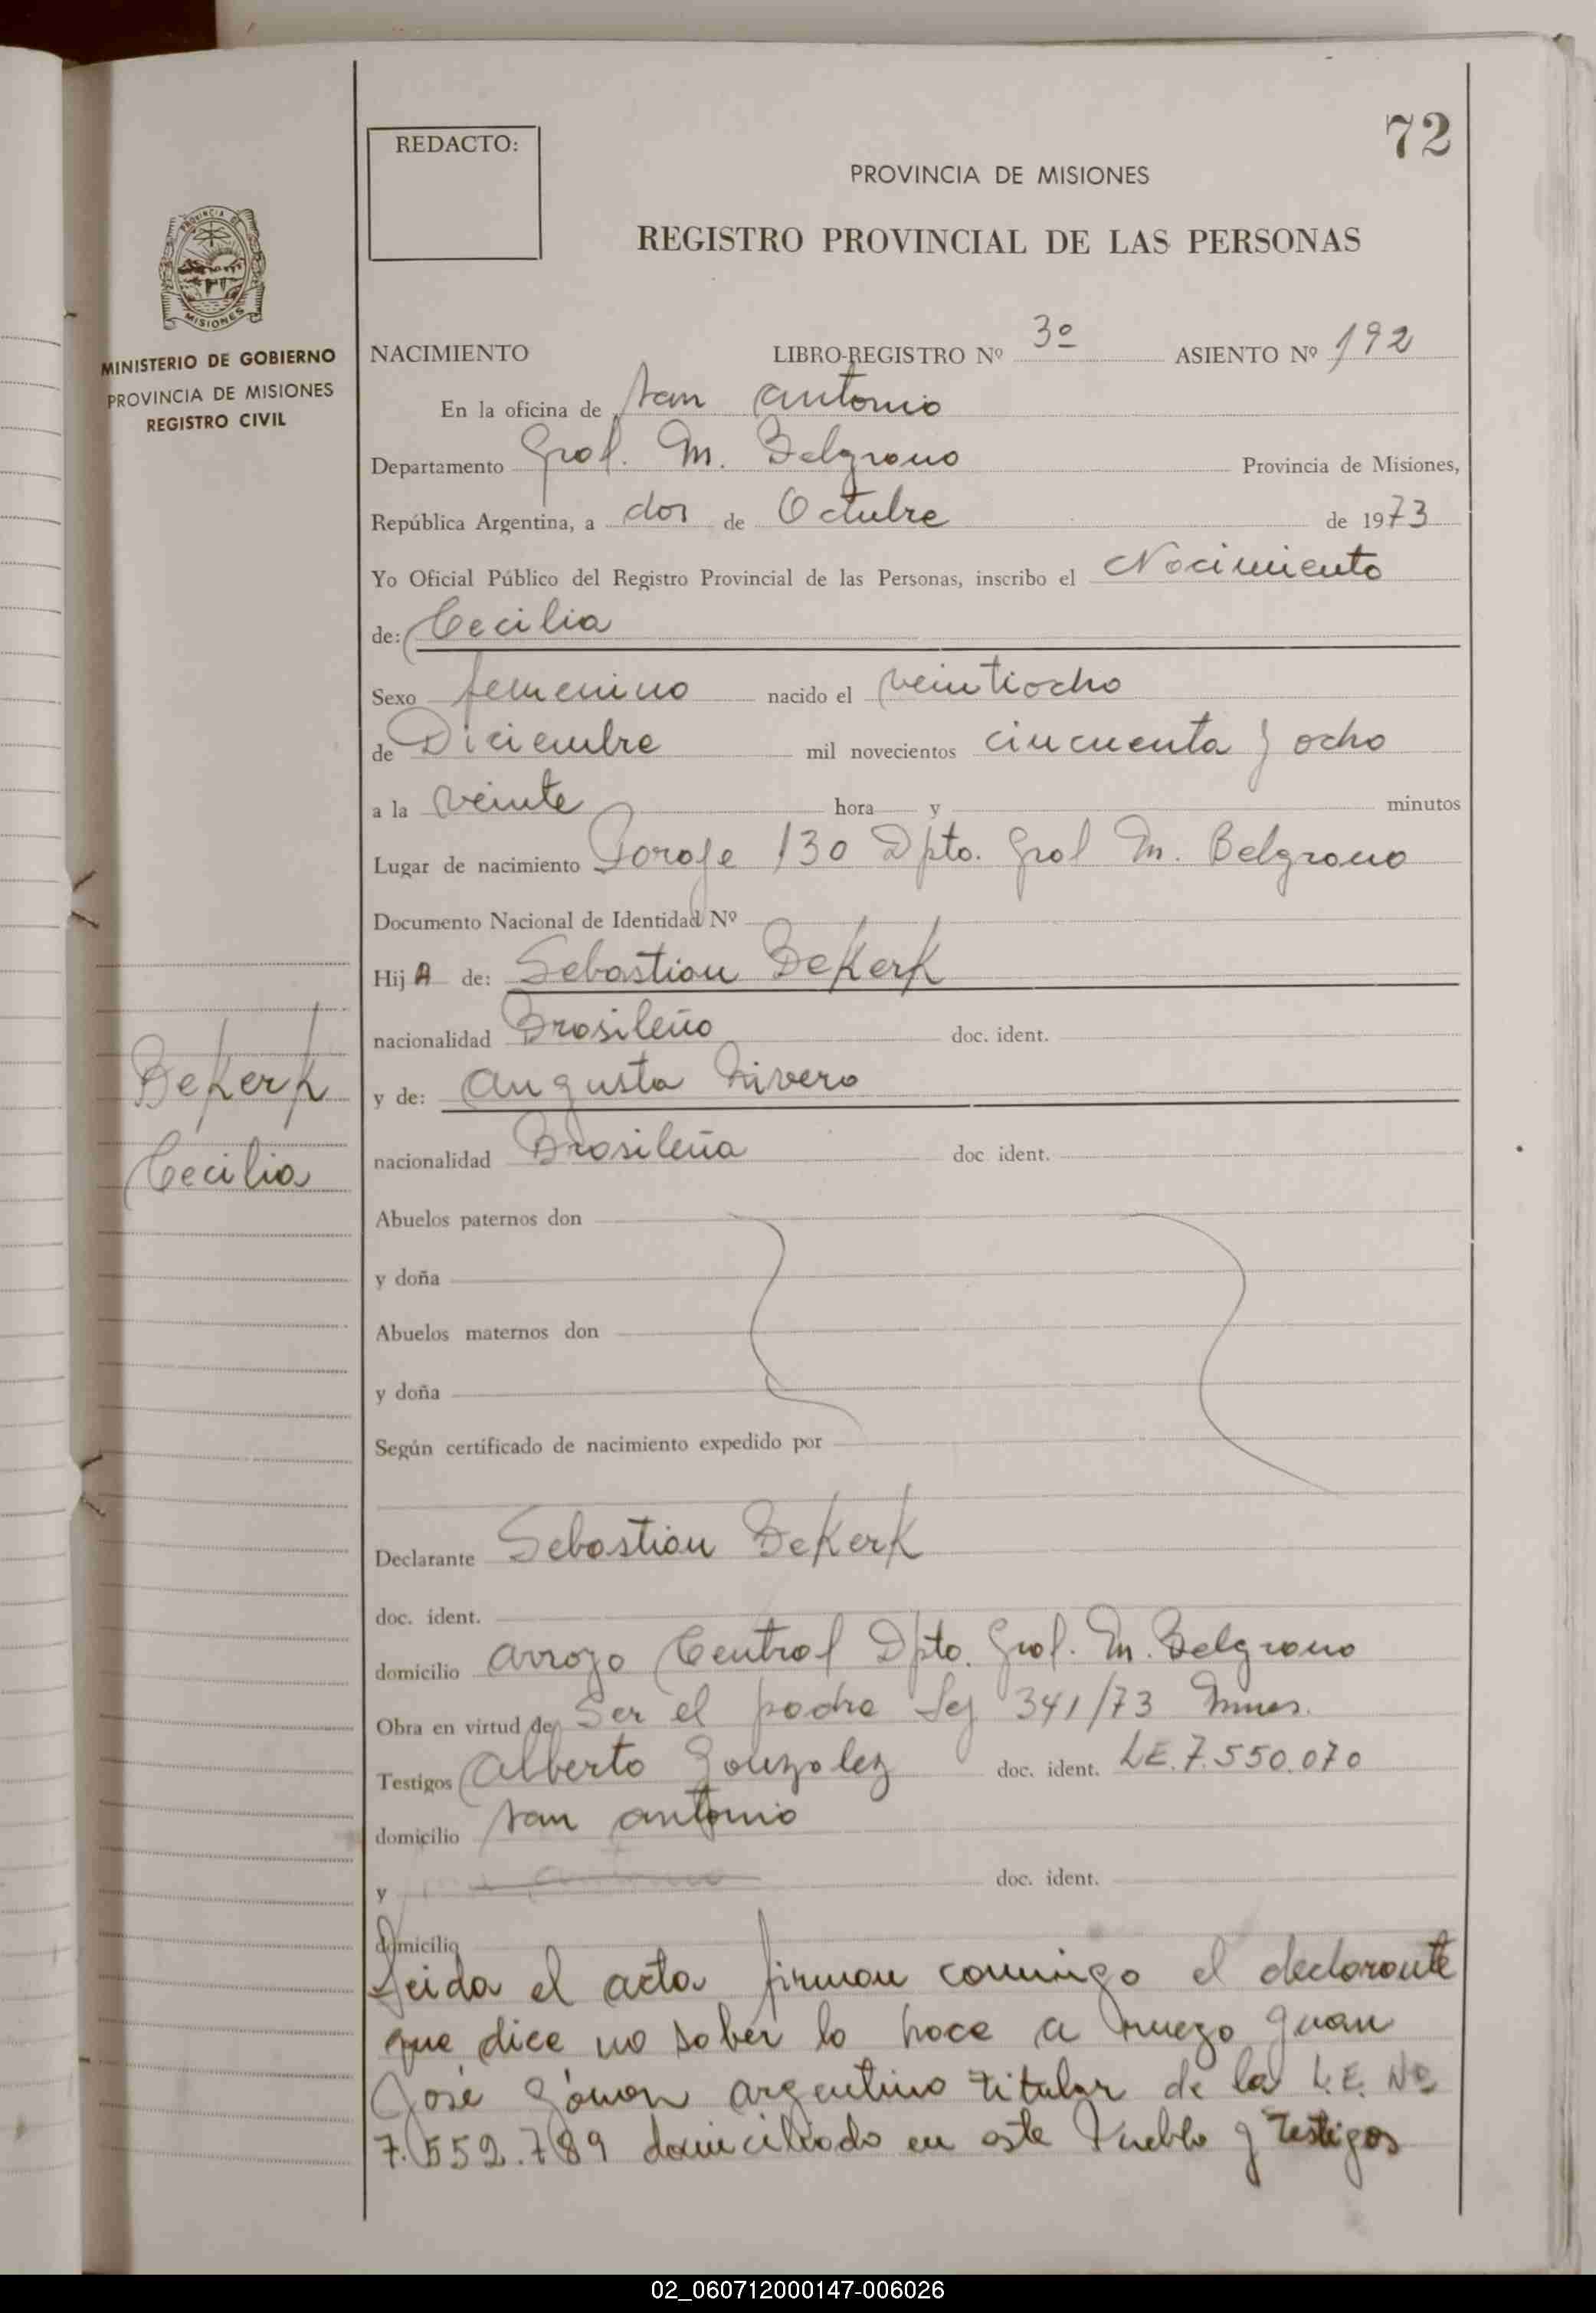 72
REDACTO:
PROVINCIA DE MISIONES
REGISTRO PROVINCIAL DE LAS PERSONAS
PROVINCIA DE
MISIONES
MINISTERIO DE GOBIERNO
PROVINCIA DE MISIONES
REGISTRO CIVIL
NACIMIENTO LIBRO-REGISTRO Nº 3º ASIENTO Nº 192
En la oficina de San Antonio
Departamento Gral. M. Belgrano Provincia de Misiones,
República Argentina, a dos de Octubre de 1973
Yo Oficial Público del Registro Provincial de las Personas, inscribo el Nacimiento
de: Cecilia
Sexo femenino nacido el veintiocho
de Diciembre mil novecientos cincuenta y ocho
a la veinte hora y minutos
Lugar de nacimiento Paraje 130 Dpto. Gral M. Belgrano
Documento Nacional de Identidad Nº
Hij A de: Sebastian BeKerK
nacionalidad Brasileño doc. ident.
y de: Augusta Rivero
nacionalidad Brasileña doc ident.
BeKerK
Cecilia
Abuelos paternos don
y doña
Abuelos maternos don
y doña
Según certificado de nacimiento expedido por
Declarante Sebastian BeKerK
doc. ident.
domicilio Arroyo Central Dpto. Gral. M. Belgrano
Obra en virtud de Ser el padre Ley 341/73 Mnes.
Testigos Alberto Gonzalez doc. ident. LE. 7.550.070
domicilio San Antonio
y doc. ident.
domicilio
Leida el acta firman conmigo el declarante
que dice no saber lo hace a ruego Juan
José argentino titular de la L.E. Nº
7.552.789 domiciliado en este Pueblo y testigos
02_060712000147-006026